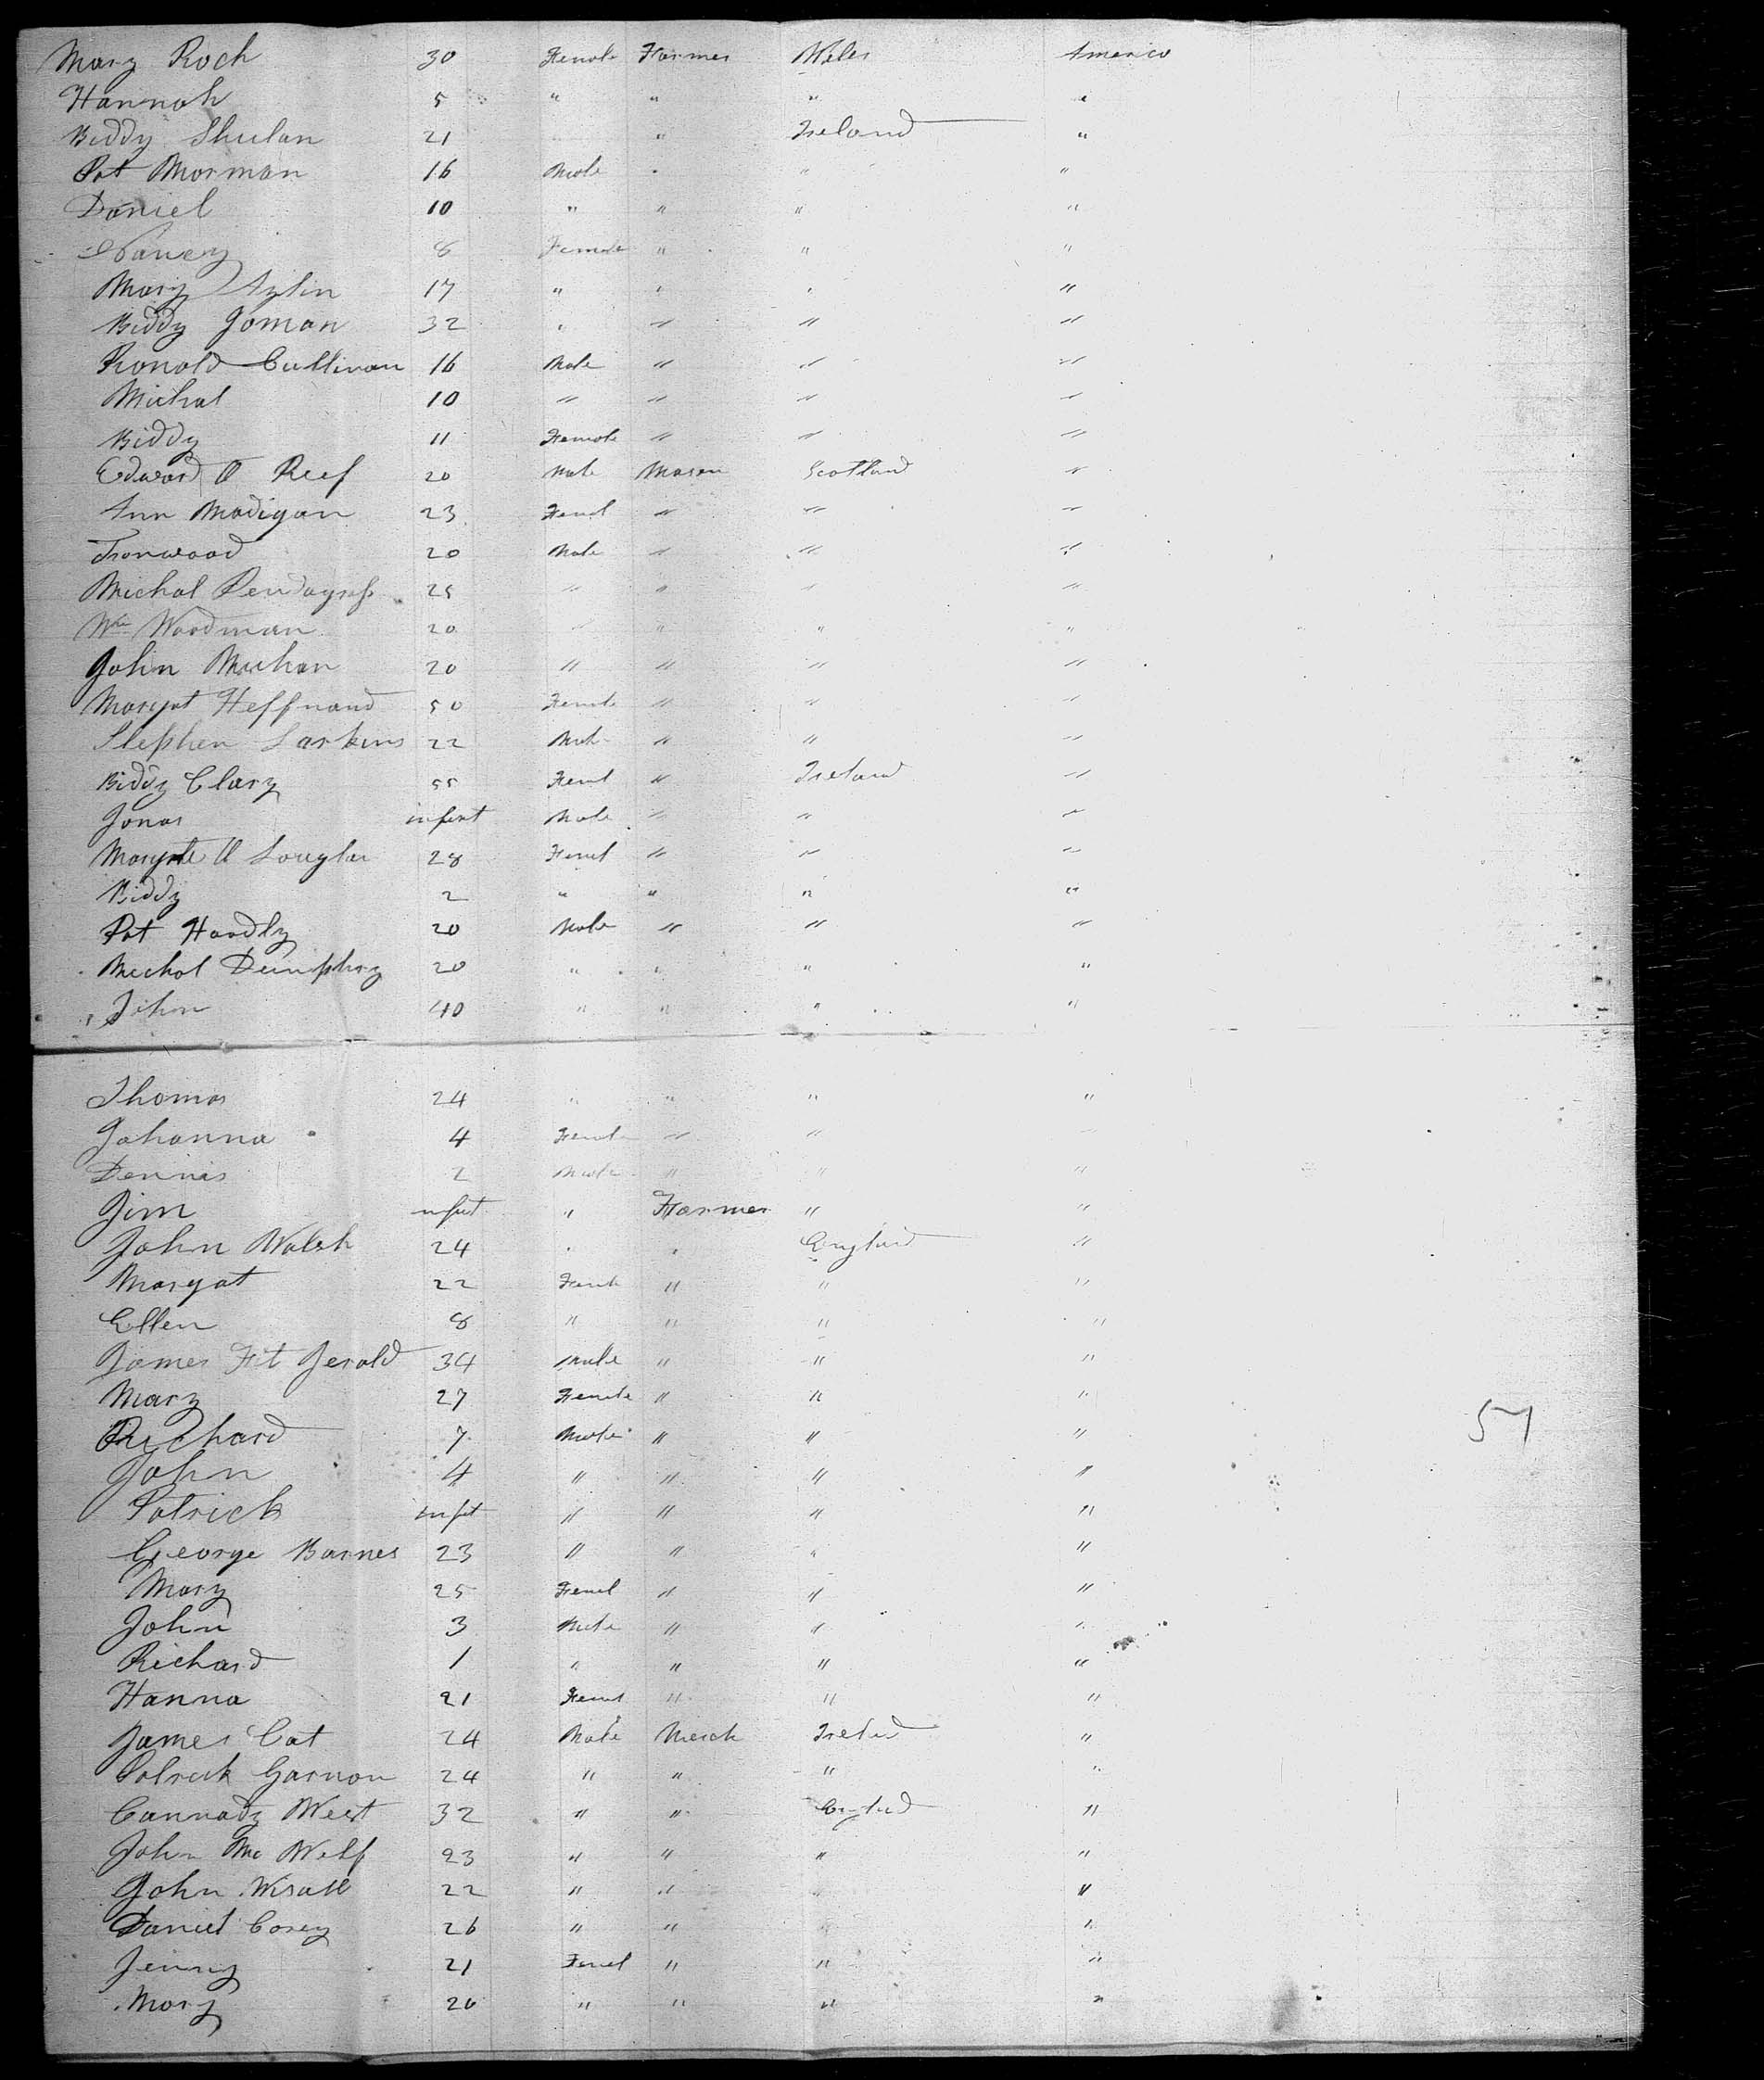 Mary Roch 30 Female Farmer Wales America
Hannah 5 " " " "
Biddy Shulan 21 " Ireland "
Pat Morman 16 Male " " "
Daniel 10 " " " "
Nancy 8 Female " " "
Mary Aylin 17 " " " "
Biddy Goman 32 " " " "
Ronold Cullivan 16 Male " " "
Michal 10 " " " "
Biddy 11 Female " " "
Edward O Reef 20 Male Mason Scotland "
Ann Madigan 23 Femel " " "
Ironwood 20 Male " " "
Michal 25 " " " "
Wm Woodman 20 " " " "
John Muhan 20 " " " "
Margat Heffnand 50 Female " " "
Stephen Larkins 22 Male " " "
Biddy Clary 55 Femel " Ireland "
Jonas infant Male " " "
O 28 Femel " " "
Biddy 2 " " " "
Pat Hardly 20 Male " " "
Michal Dumphry 20 " " " "
John 40 " " " "
Thomas 24 " " " "
Johanna 4 Female " " "
Dennis 2 Male " " "
Jim infant " Farmer " "
John Walsh 24 " " England "
Margat 22 Female " " "
Ellen 8 " " " "
James Fit Jerald 34 Male " " "
Mary 27 Female " " "
Richard 7 Male " " "
John 4 " " " "
Patrick infant " " " "
George Barnes 23 " " " "
Mary 25 Femel " " "
John 3 Male " " "
Richard 1 " " " "
Hanna 21 Femel " " "
James Cat 24 Male Merch Ireland "
Patrick Garnon 24 " " " "
Cannady West 32 " " England "
John Mc Welf 23 " " " "
John 22 " " " "
Daniel Cosey 26 " " " "
Jenny 21 Femel " " "
Mary 26 " " " "
57